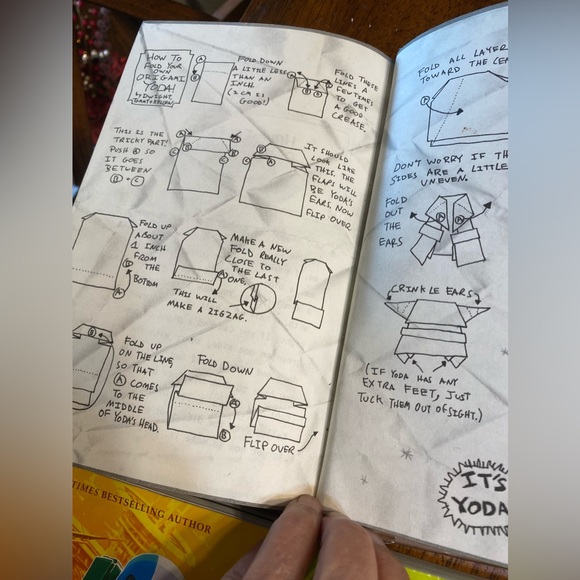 HOW TO
FOLD YOUR
OWN
ORIGAMI
YODA!
by DWIGHT
A
B
FOLD DOWN
A LITTLE LESS
THAN AN
INCH.
(2 CM IS
GOOD!)
FOLD THESE
LINES A
FEW TIMES
TO GET
A GOOD
CREASE.
THIS IS THE
TRICKY PART!
PUSH A SO
IT GOES
BETWEEN
B + C
A
B
C
D
B
C
IT SHOULD
LOOK LIKE
THIS. THE
FLAPS WILL
BE YODA'S
EARS. NOW
FLIP OVER
FOLD UP
ABOUT
1 INCH
FROM
THE
BOTTOM
B
A
MAKE A NEW
FOLD REALLY
CLOSE TO
THE LAST
ONE.
THIS WILL
MAKE A ZIGZAG.
FOLD UP
ON THE LINE,
SO THAT
A COMES
TO THE
MIDDLE
OF YODA'S HEAD.
FOLD DOWN
A
B
FLIP OVER
TIMES BESTSELLING AUTHOR
FOLD ALL LAYER
TOWARD THE
DON'T WORRY IF TH
SIDES ARE A LITTLE
UNEVEN.
FOLD
OUT
THE
EARS
A
A
CRINKLE EARS
(IF YODA HAS ANY
EXTRA FEET, JUST
TUCK THEM OUT OF SIGHT.)
IT'S
YODA